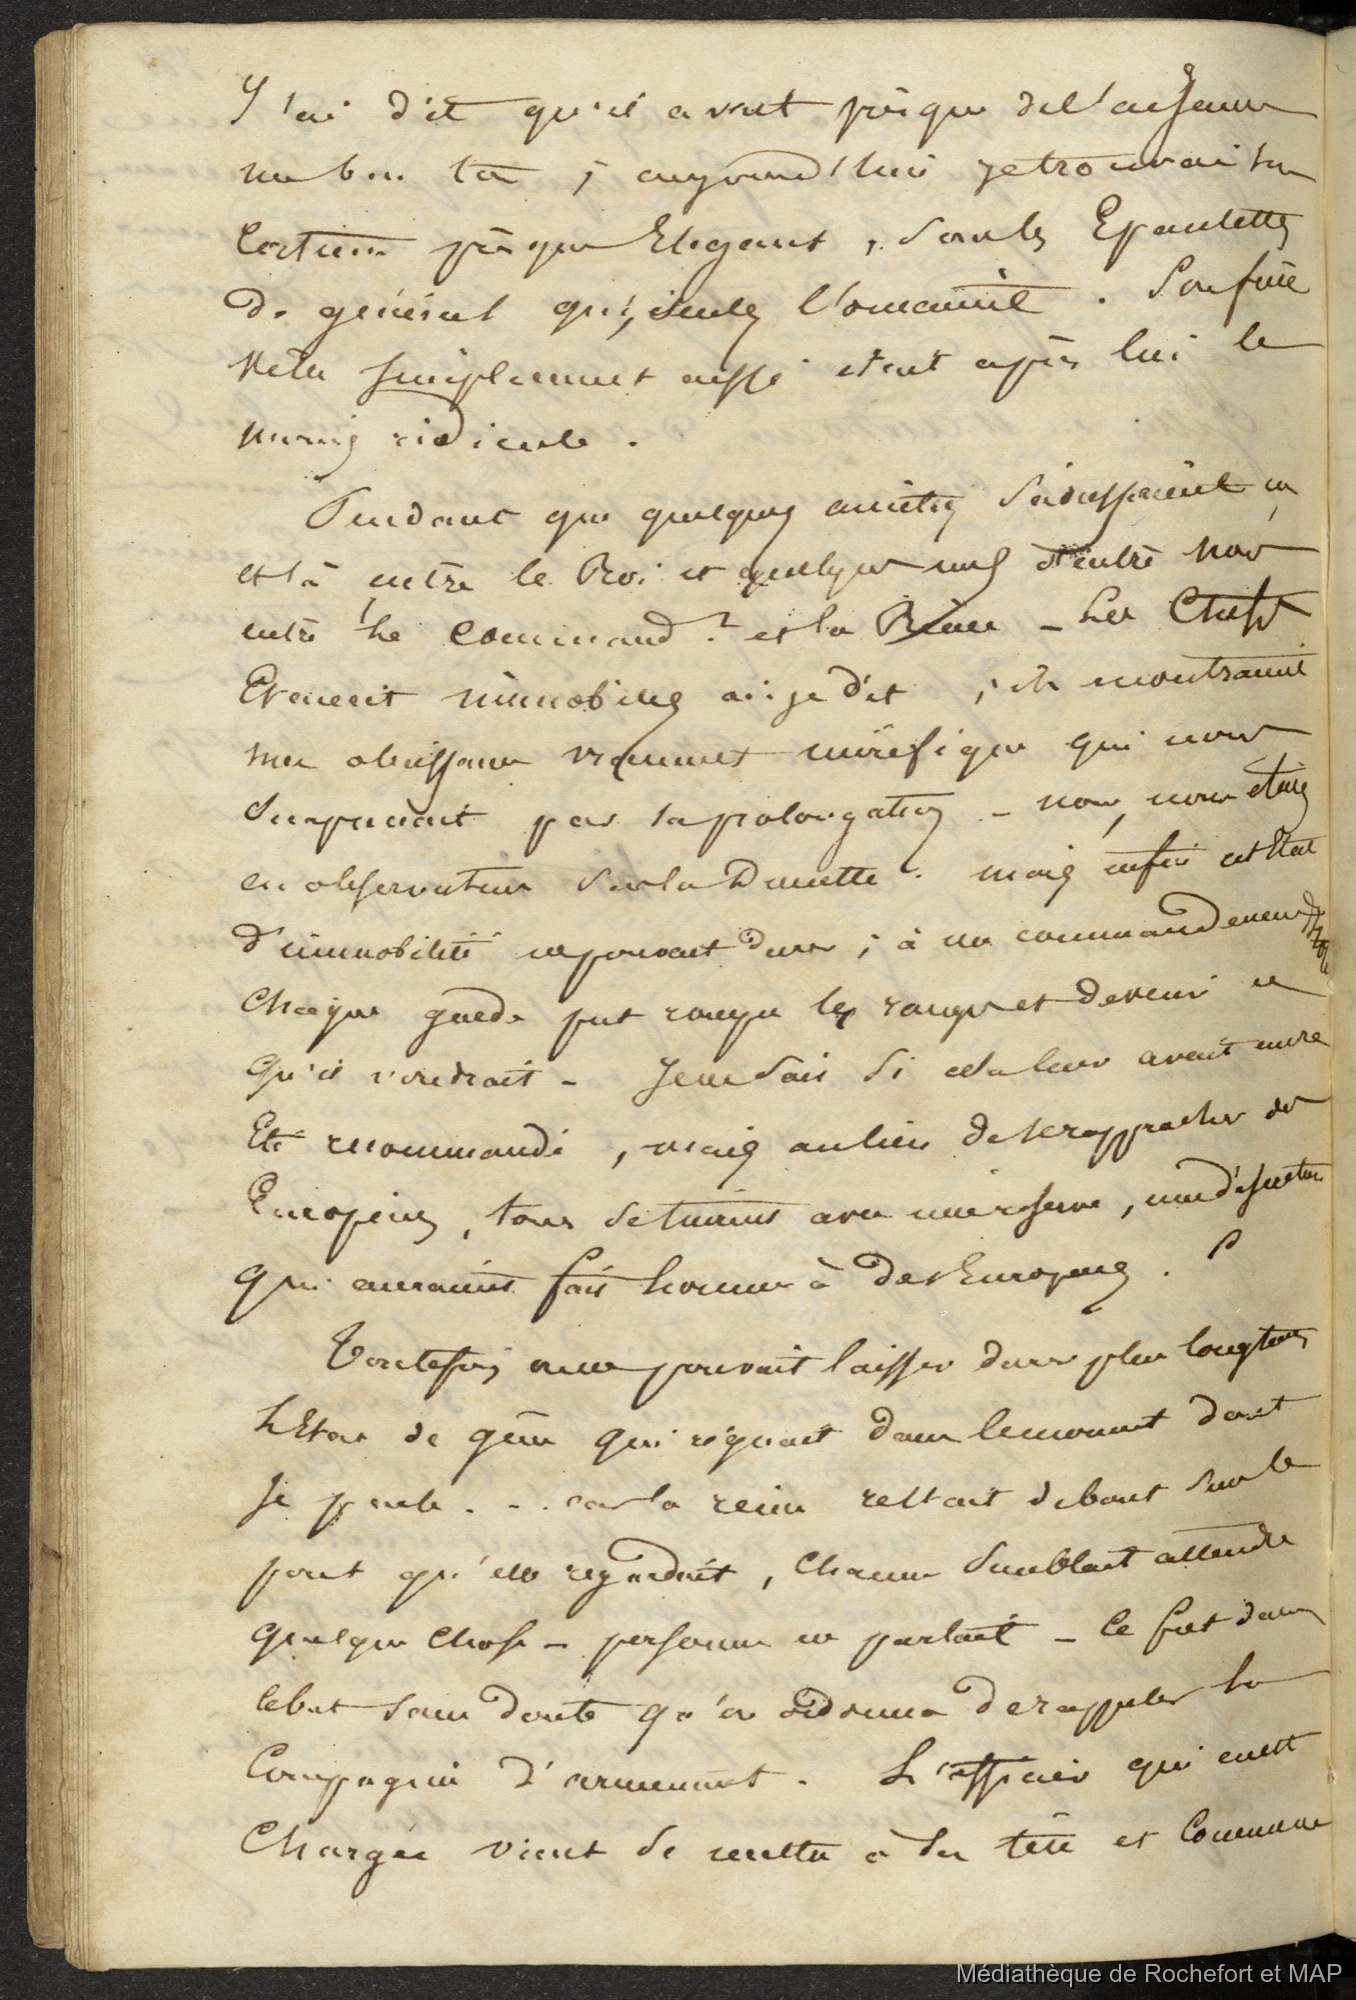 J'ai dit qu'il avait presque de l'aisance
un bon ton ; aujourd'hui je trouvai son
Costume presque Elegant, Seules Epaulettes
de général qui, seules l'ornaient. Son frère
vetu simplement aussi etait après lui le
moins ridicule.
Pendant que quelques amitiés s'adressaient ça
et là entre le Roi et quelques uns d'entre nous
entre le command.t et la Reine - Les Chefs
Etaient immobiles ai-je dit ; ils montraient
une obeissance vraiment mirifique qui nous
surprenait par sa prolongation - nous, nous étions
en observateurs sur la Dunette. mais enfin cet Etat
d'immobilité ne pouvait durer ; à un commandement
Chaque garde put rompre les rangs et devenir ce
qu'il voudrait - Je ne sais si cela leur avait
Eté recommandé, mais au lieu de se rapprocher des
Européens, tous se tinrent avec une reserve, une discretion
qui auraient fait honneur à des Européens.
Toutefois on ne pouvait laisser durer plus longtems
L'Etat de gêne qui régnait dans le moment dont
Je parle... car la reine restait debout sur le
pont qu'elle regardait, Chacun semblait attendre
quelque chose - personne ne parlait - Ce fut dans
le but sans doute qu'on ordonna de rappeler la
Compagnie d'armement. L'officier qui en est
Chargé vient se mettre à sa tête et Commence
Médiathèque de Rochefort et MAP